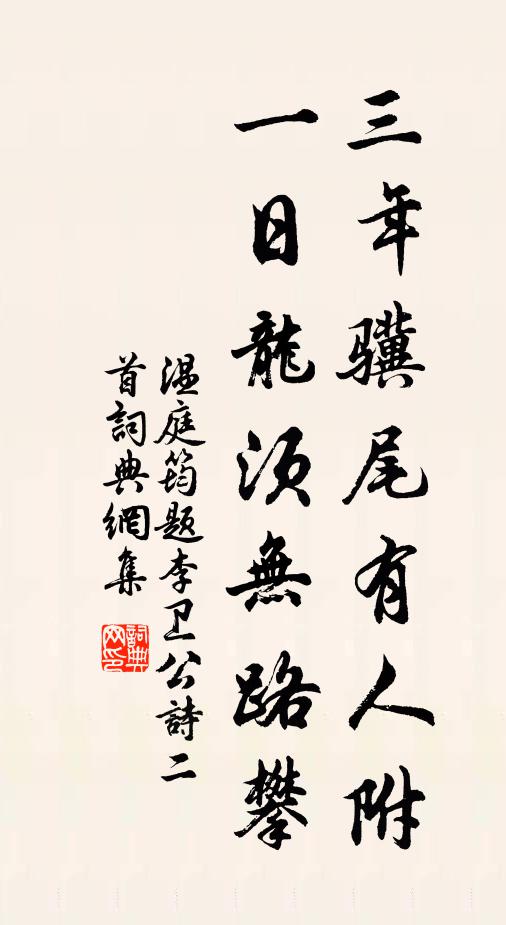 三年骥尾有人附
一日龍须無路攀
温庭筠题李卫公詩二
首詞典網集
詞典网印